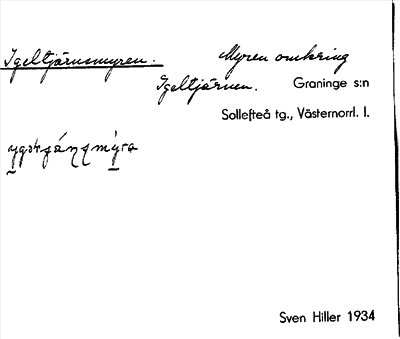 Igeltjärnsmyren. Myren omkring
Igeltjärnen. Graninge s:n
Sollefteå tg., Västernorrl. l.
Sven Hiller 1934